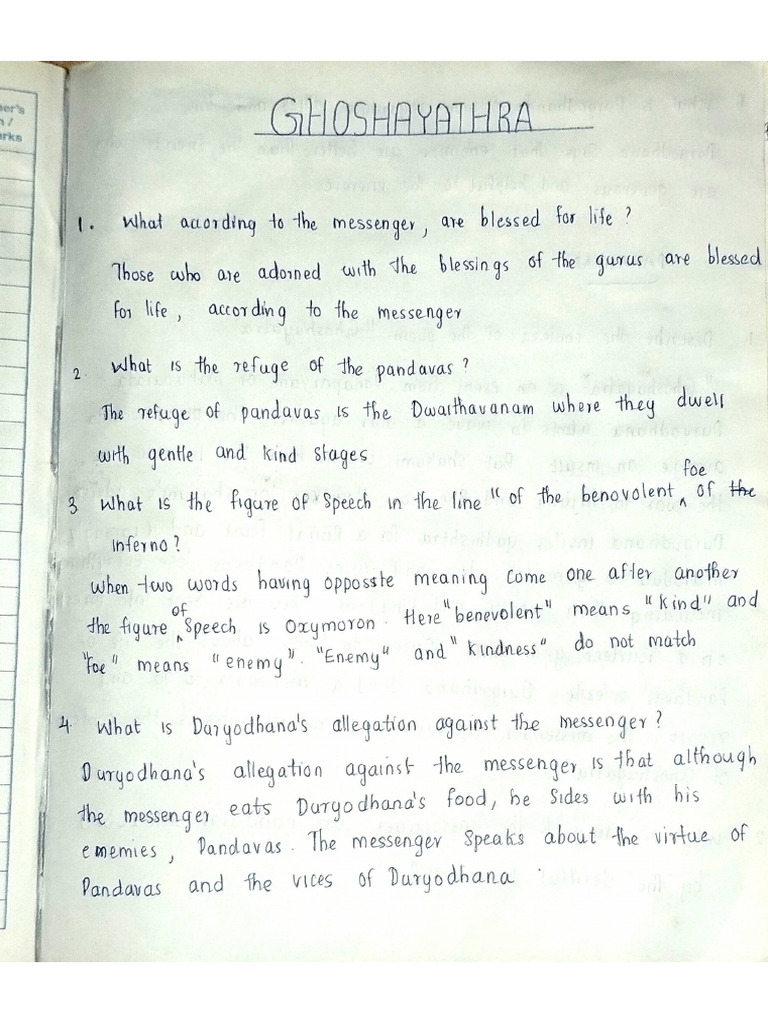 ner's
n /
arks
GHOSHAYATHRA
1. What aaording to the messenger, are blessed for life ?
Those who are adorned with the blessings of the gurus are blessed
for life, according to the messenger
2. What is the refuge of the pandavas ?
The refuge of pandavas is the Dwaithavanam where they dwell
with gentle and kind stages.
3 What is the figure of speech in the line "of the benovolent foe of the
inferno?
When two words having opposste meaning come one after another
the figure of speech is oxymoron. Here "benevolent" means "kind" and
"foe" means "enemy". "Enemy" and "kindness" do not match
4. What is Duryodhana's allegation against the messenger ?
Duryodhana's allegation against the messenger is that although
the messenger eats Duryodhana's food, he sides with his
enemies, Pandavas. The messenger speaks about the virtue of
Pandavas and the vices of Duryodhana.